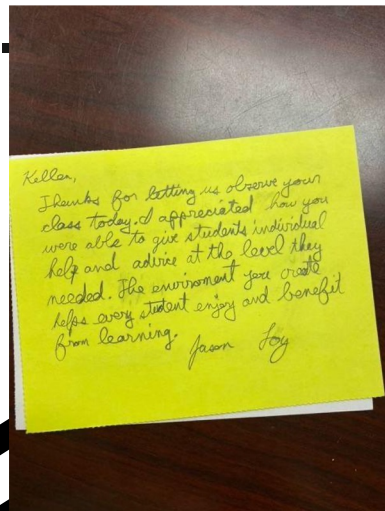 Kellen,
Thanks for letting us observe your
class today. I appreciated how you
were able to give students individual
help and advice at the level they
needed. The enviroment you create
helps every student enjoy and benefit
from learning.
Jason Foy